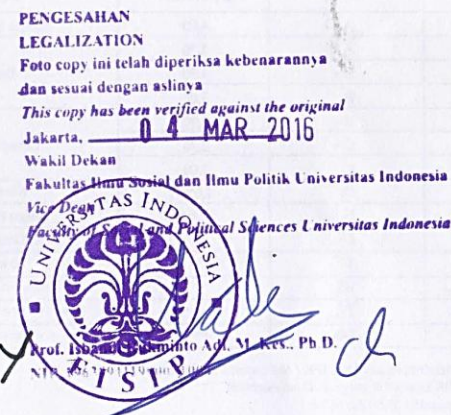 PENGESAHAN
LEGALIZATION
Foto copy ini telah diperiksa kebenarannya
dan sesuai dengan aslinya
This copy has been verified against the original
Jakarta, 04 MAR 2016
Wakil Dekan
Fakultas Ilmu Sosial dan Ilmu Politik Universitas Indonesia
Vice Dean
Faculty of Social and Political Sciences Universitas Indonesia
UNIVERSITAS INDONESIA
FISIP
Prof. Adi, M. Kes., Ph D.
NIP.